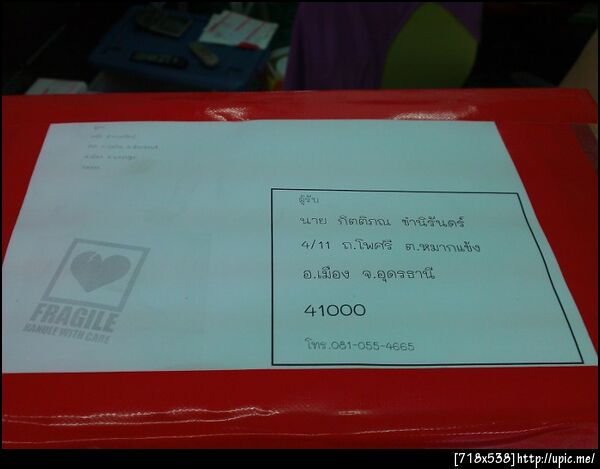 ผู้รับ
นาย กิตติภณ ชำนิรันดร์
4/11 ถ.โพศรี ต.หมากแข้ง
อ.เมือง จ.อุดรธานี
41000
โทร.081-055-4665
FRAGILE
HANDLE WITH CARE
[718x538]http://upic.me/